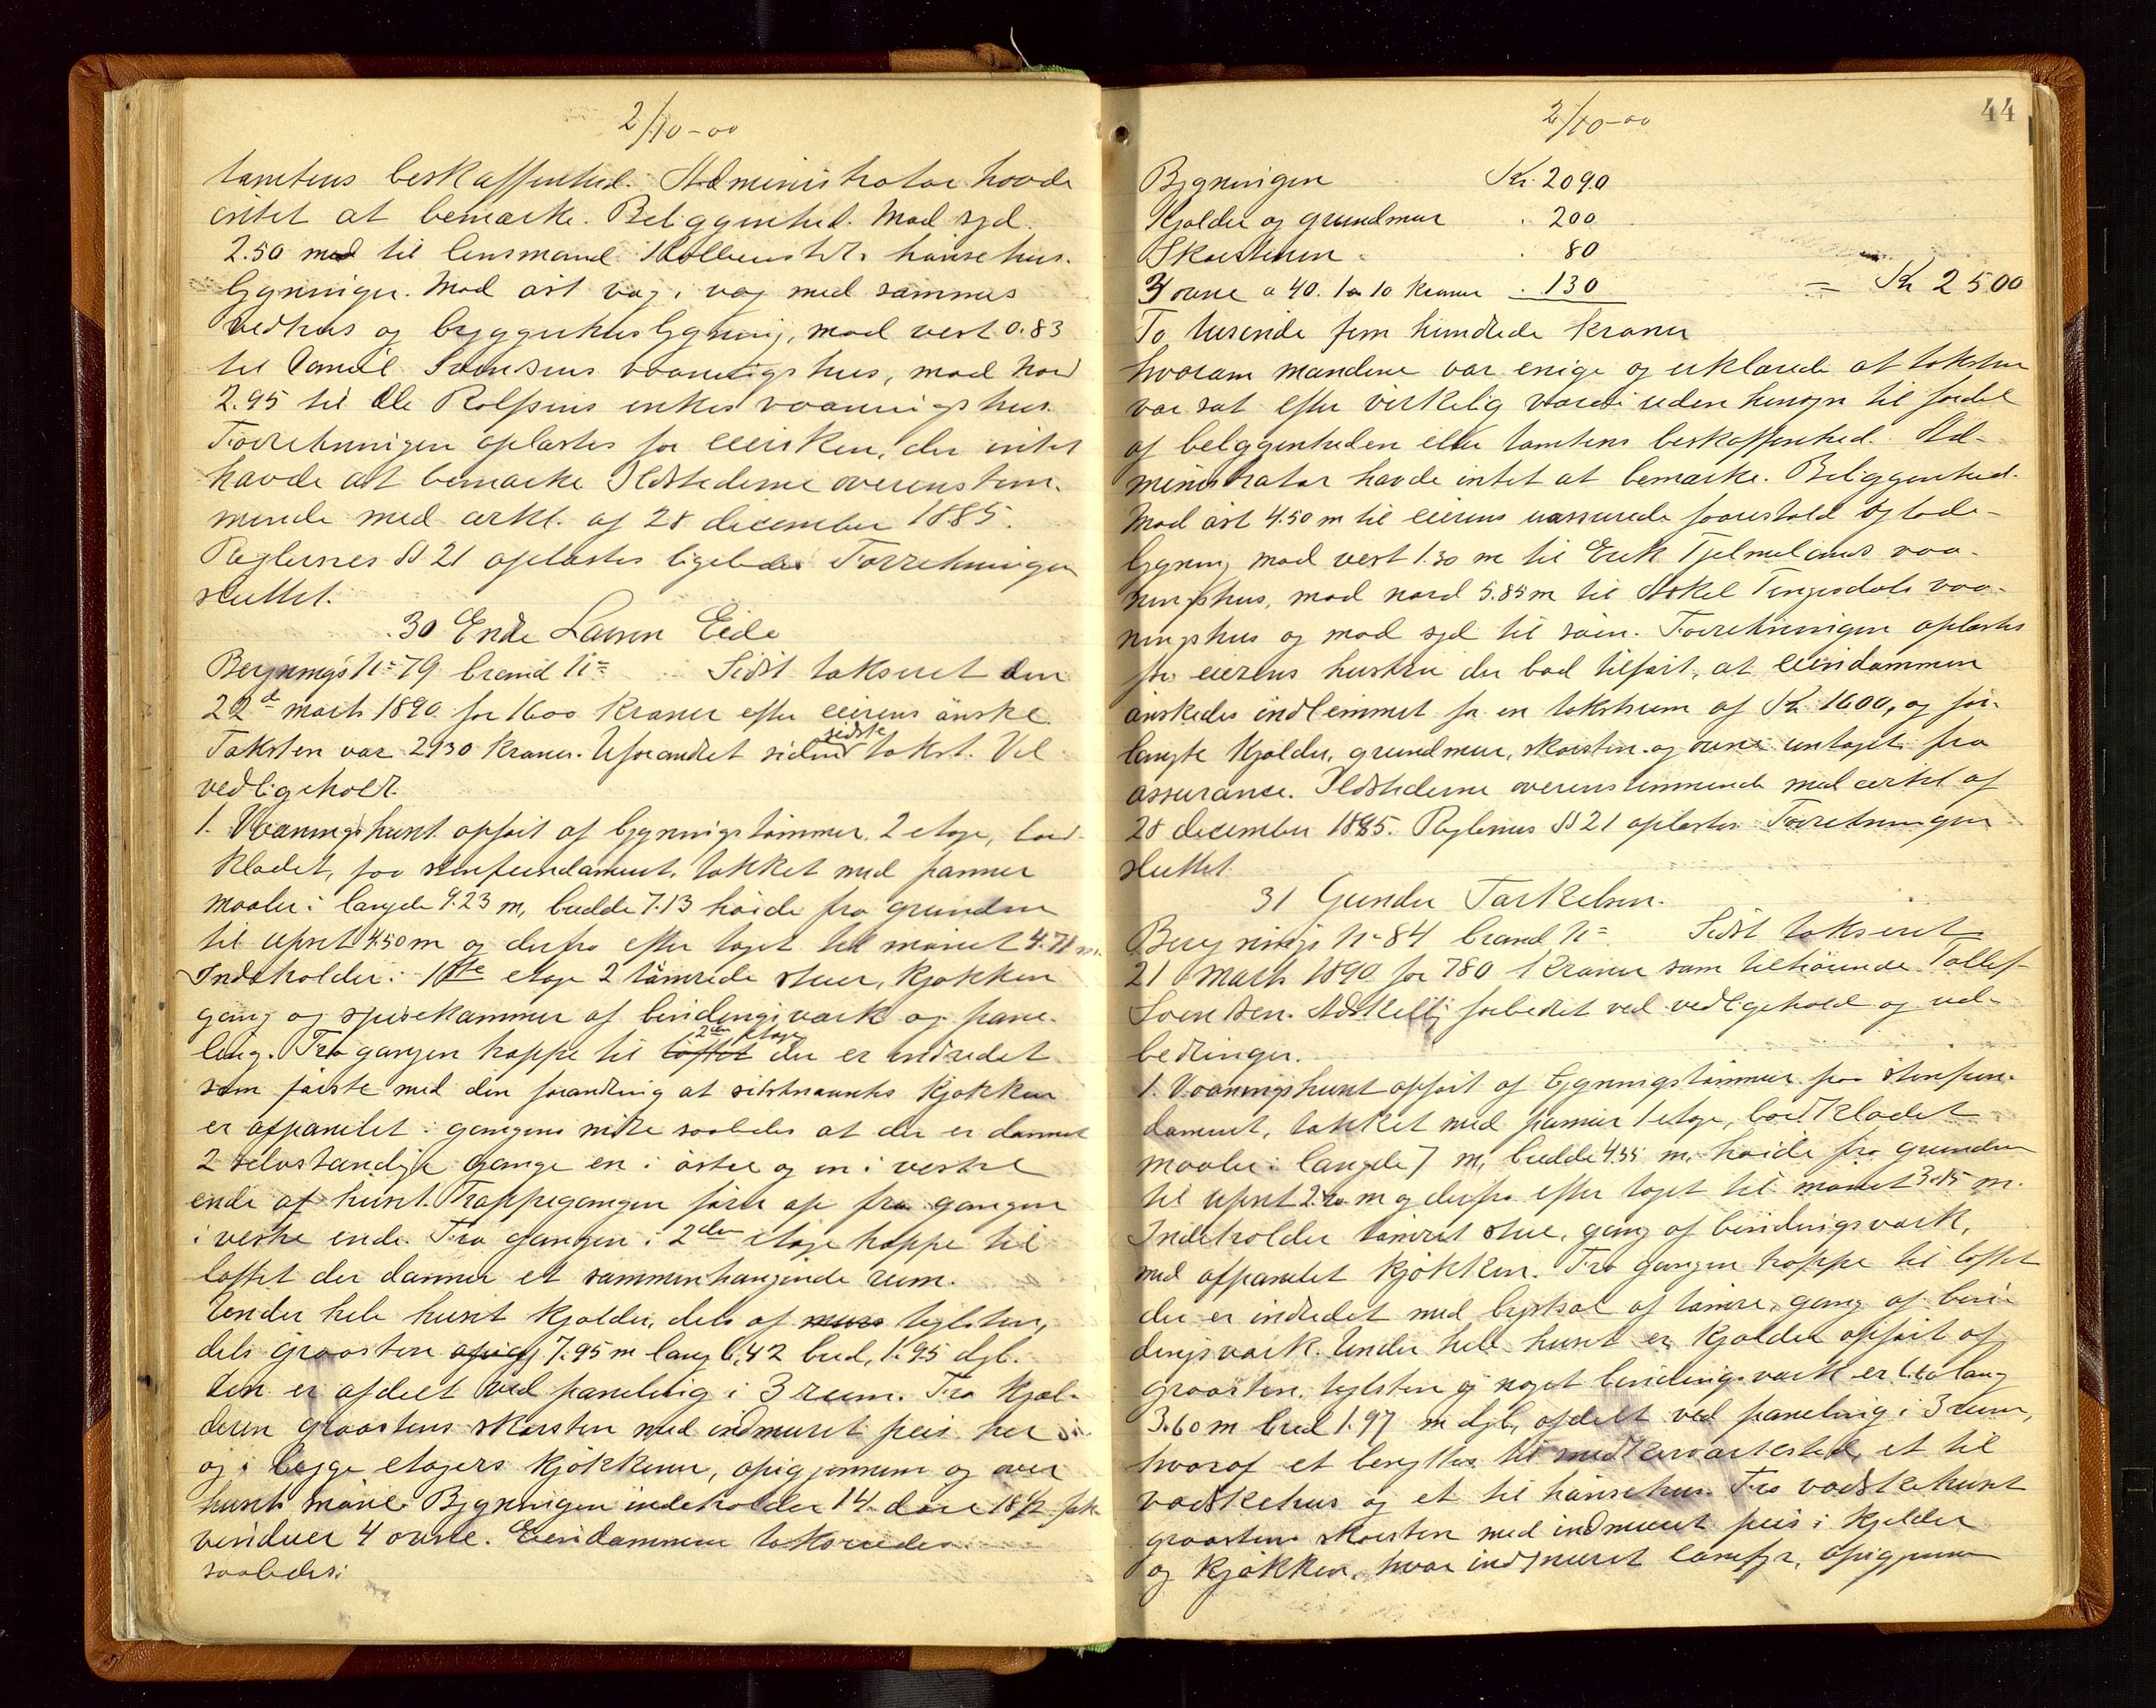 2/10-00
tomtens beskaffenhed. Administrator havde
intet at bemærke. Beliggenhed. Mod syd
2.50 m til lensmand hønsehus-
bygninger. Mod øst væg i væg med sammes
vedhus og bryggerhusbygning, mod vest 0.83
til Daniel Svendsens vaaningshus, mod nord
2.95 til Ole Rolfsens enkes vaaningshus.
Forretningen oplæstes for eiersken, der intet
havde at bemærke Ildstederne overenstem-
mende med cirkl. af 28 december 1885.
Reglernes § 21 oplæstes ligeledes Forretningen
sluttet.
30 Endre Larsen Eide
Bygnings No 79 brand No Sidst takseret den
22d marts 1890 for 1600 kroner efter eierens ønske
Taksten var 2130 kroner. Uforandret siden sidste takst. Vel
vedligeholdt.
1. Vaaningshuset opført af bygningstømmer 2 etage, bord-
klædet, paa stenfundament, tækket med panner
maaler: længde 9.23 m, bredde 7.13 høide fra grunden
til upset 4.50 m og derfra efter taget til mønet 4.71 m.
Indeholder: 1ste etage 2 tømrede stuer, kjøkken
gang og spisekammer af bindingsværk og pane-
ling. Fra gangen trappe til 2den etage der er indredet
som første med den forandring at sidstnævnte kjøkken
er afpanelet i gangens midte saaledes at der er dannet
2 selvstændige gange en i østre og en i vestre
ende af huset. Trappegangen fører op fra gangen
i vestre ende. Fra gangen i 2den etage trappe til
loftet der danner et sammenhængende rum.
Under hele huset kjælder, dels af teglsten,
dels graasten 7.95 m lang 6,42 bred, 1.95 dyb.
den er afdelt ved paneling i 3 rum. Fra kjæl-
deren graastens skorsten med indmuret peis her
og i begge etagers kjøkkener, opigjennem og over
husets møne. Bygningen indeholder 14 døre 18 1/2 fak
vinduer 4 ovne. Eiendommen takseredes
saaledes:
2/10-00
44
Bygningen Kr. 2090
Kjælder og grundmur " 200
Skorstenen " 80
3 ovne a 40. 1 a 10 kroner " 130 = Kr 2500
To tusinde fem hundrede kroner
hvorom mændene var enige og erklærede at taksten
var sat efter virkelig værdi uden hensyn til fordel
af beliggenheden eller tomtens beskaffenhed. Ad-
ministrator havde intet at bemærke. Beliggenhed.
Mod øst 4.50 m til eierens uassurerede og lade-
bygning mod vest 1.30 m til Erik Tjelmelands vaa-
ningshus, mod nord 5.85 m til Askel Tengesdals vaa-
ningshus og mod syd til søen. Forretningen oplæstes
for eierens hustru der bad tilført, at eiendommen
ønskedes indlemmet for en takstsum af Kr. 1600, og for-
langte kjælder, grundmur, skorsten og ovne untaget fra
assurance. Ildstederne overenstemmende med cirkl af
28 december 1885. Reglernes § 21 oplæstes Forretningen
sluttet.
31 Gunder Torkelsen.
Bygnings No 84 brand No Sidst takseret
21 marts 1890 for 780 kroner som tilhørende Tollef
Svendsen. Adskillig forbedret ved vedligehold og ud-
bedringer.
1. Vaaningshuset opført af bygningstømmer paa stenfun-
dament, tækket med panner 1 etage, bordklædet
maaler: længde 7 m, bredde 4.55 m, høide fra grunden
til upset m og derfra efter taget til mønet 3.15 m.
Indeholder tømret stue, gang af bindingsværk,
med afpanelet kjøkken. Fra gangen trappe til loftet
der er indredet med brystsal af tømre, gang af bin-
dingsværk. Under hele huset er kjælder opført af
graasten, teglsten og noget bindingsværk er 6.60 lang
3.60 m bred 1.97 m dyb, afdelt ved paneling i 3 rum,
hvoraf et benyttes til snedkerværksted, et til
vadskehus og et til hønsehus. Fra vadskehuset
graastens skorsten med indmuret peis i kjelder
og kjøkken, hvor indmuret comfyr, opigjennem